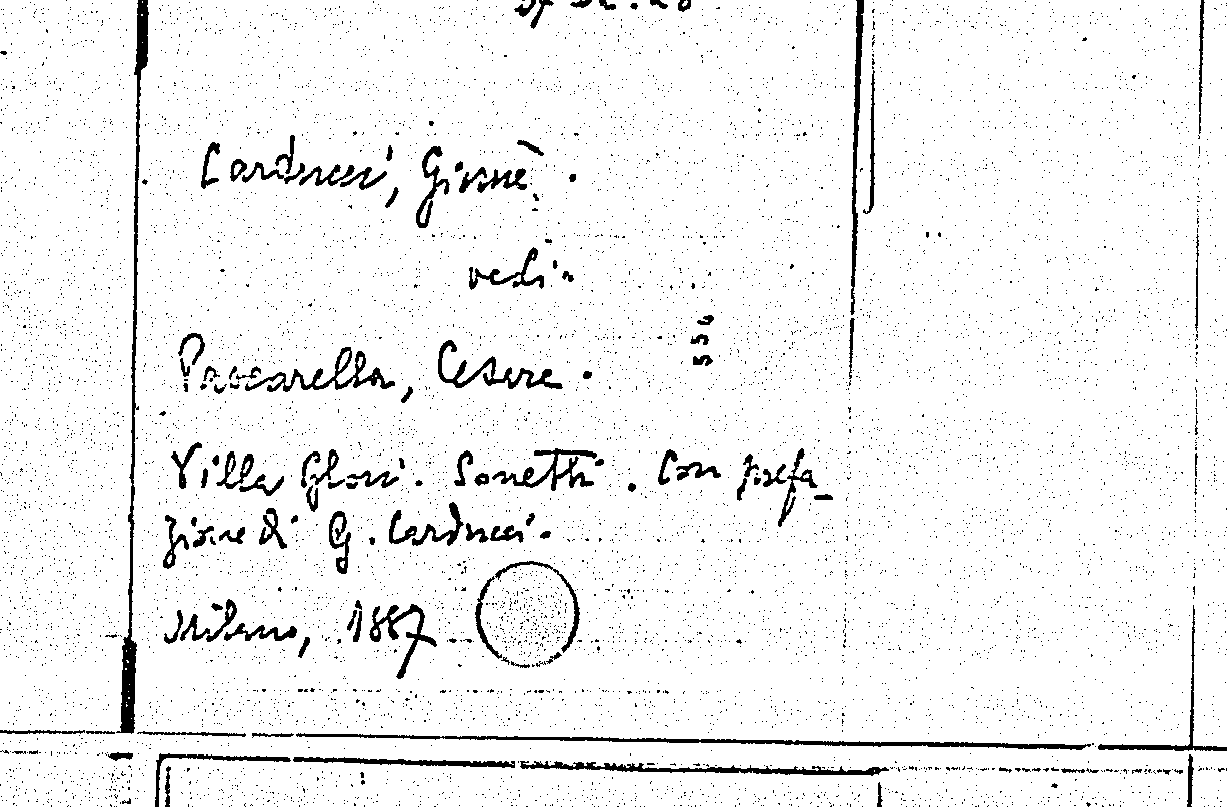 Carducci, Giosuè.
vedi.
Pascarella, Cesare.
556
Villa Glori. Sonetti. Con prefa_
zione di G. Carducci.
Milano, 1887